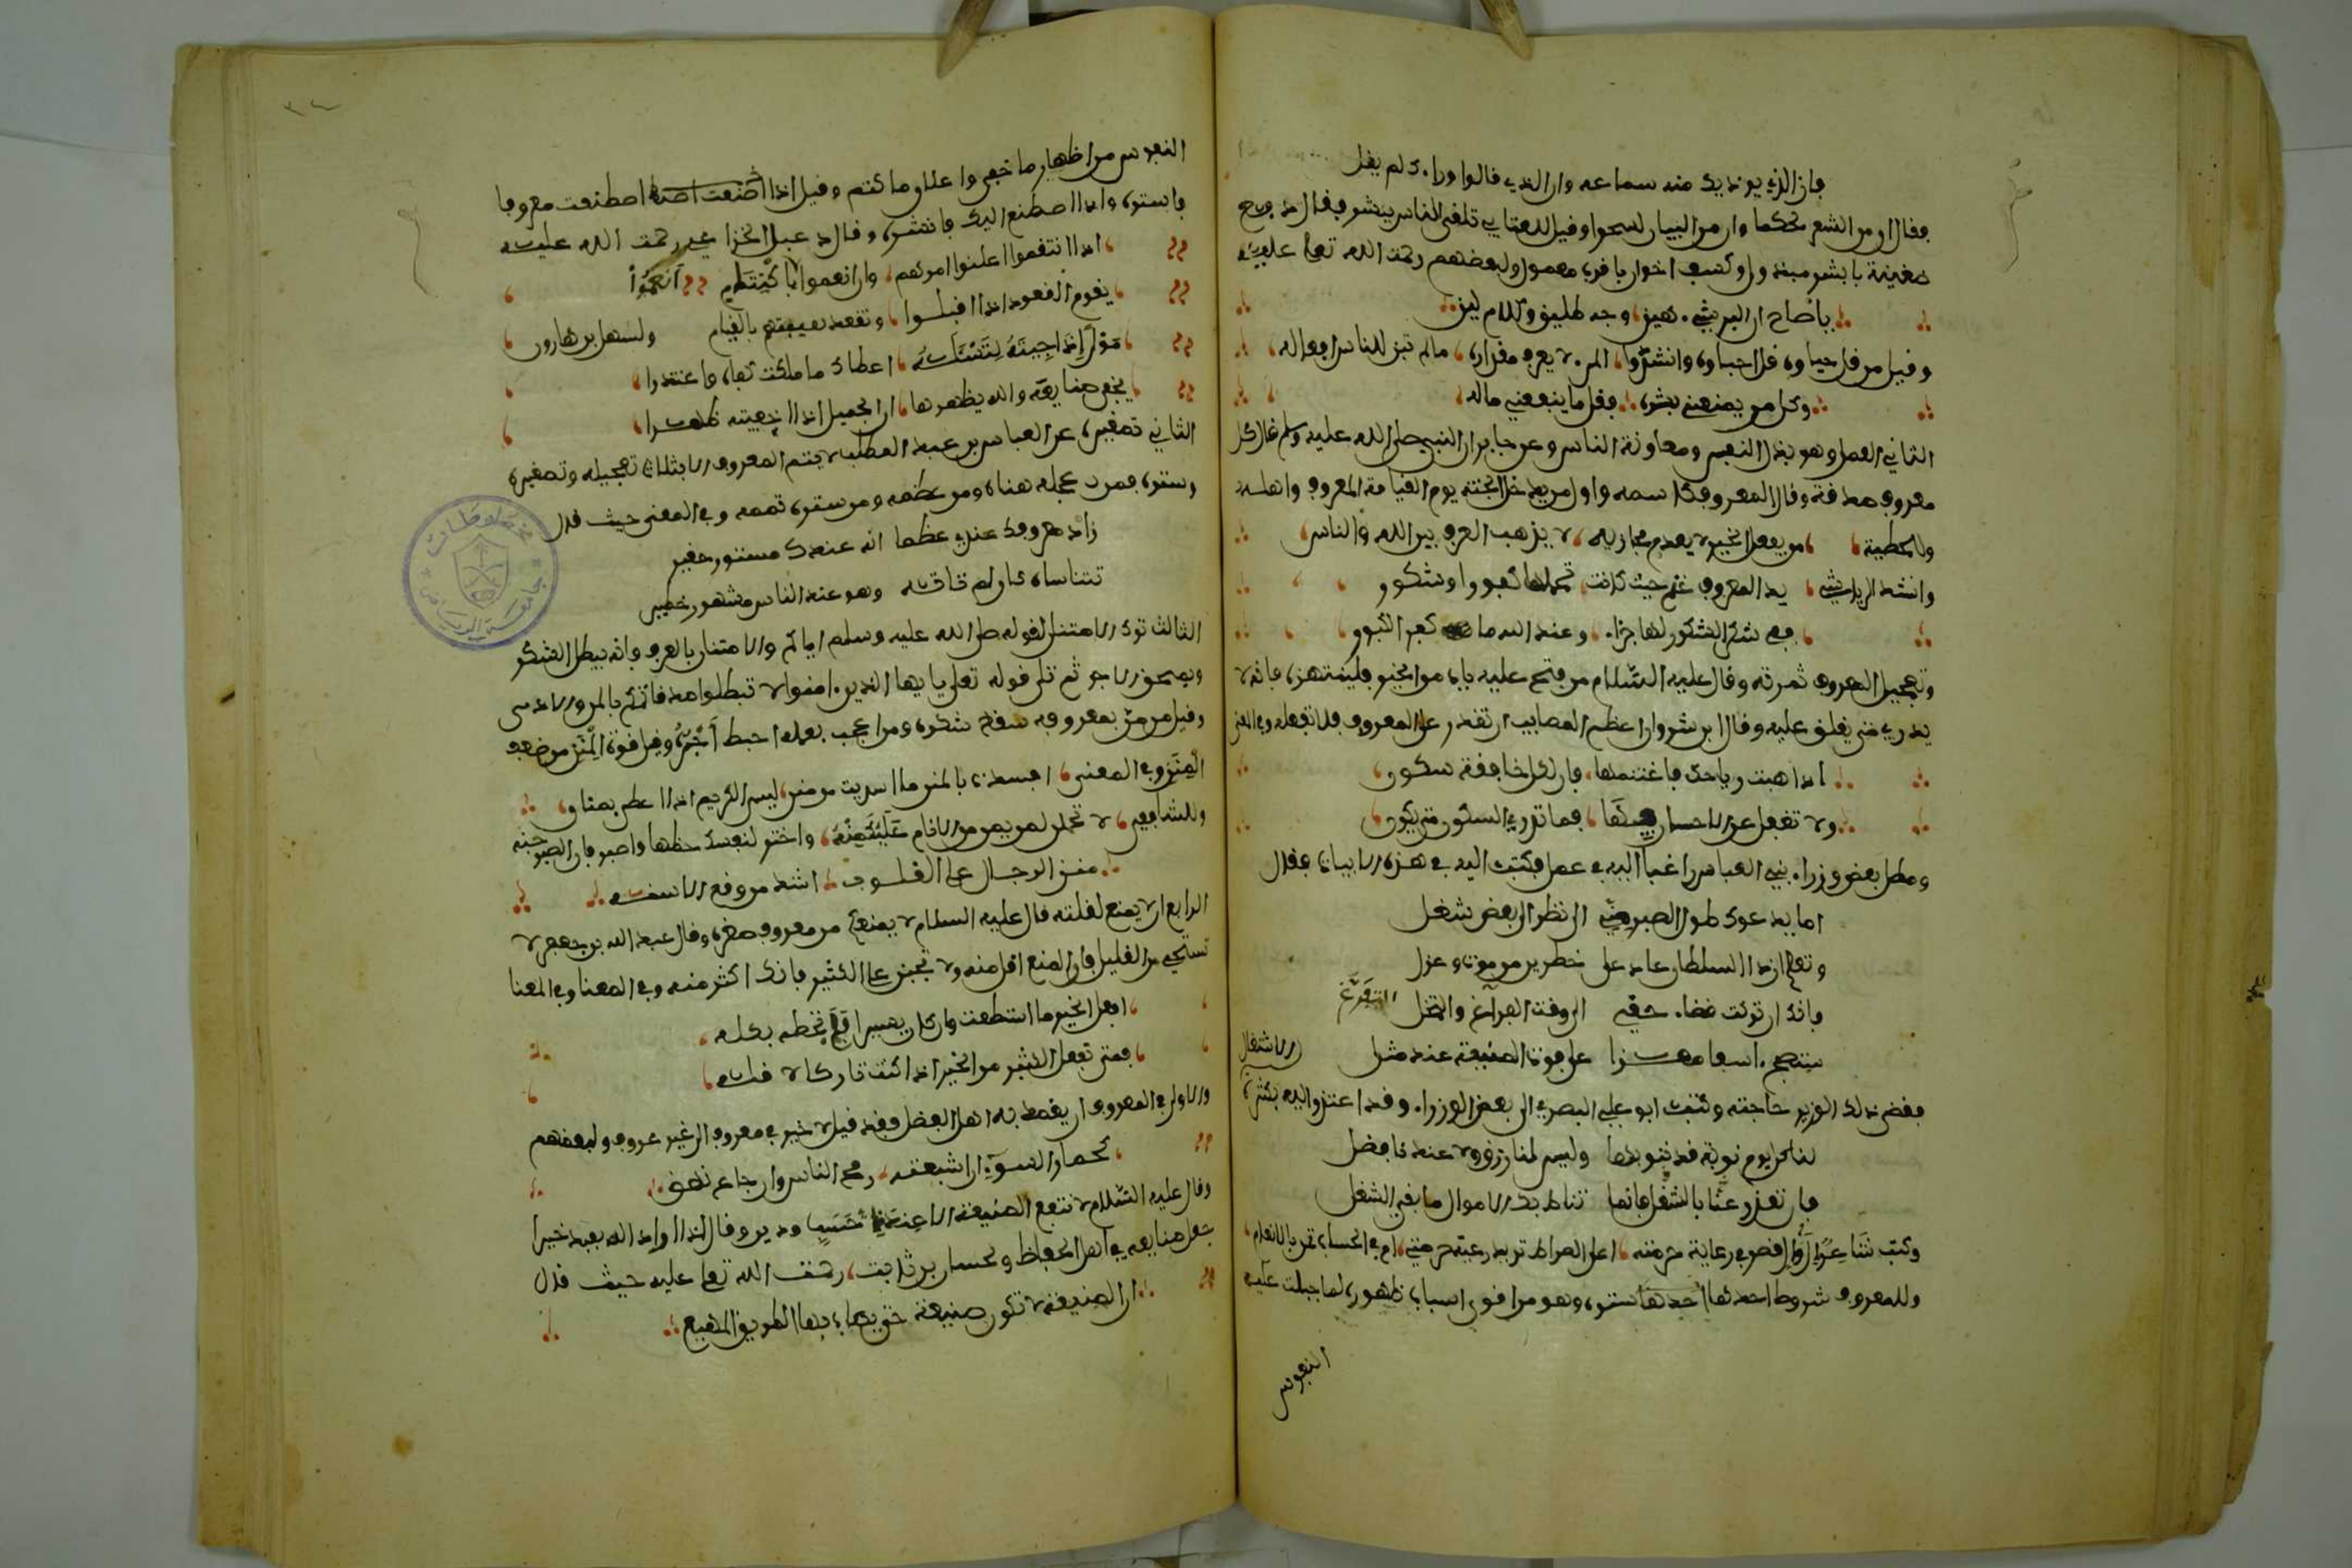 فإن الذي يوذيك منه سماعه وإن الذي قالوا وراءك لم يقل
فقال إن من الشعر لحكما وإن من البيان لسحرا وقيل للعتابي تلقى الناس ببشر فقال دفع
ضغينة بأيسر مبذول وكسب اخوان بأقرب معمول ولبعضهم رحمت الله تعلى عليه
يا صاح ان البر شيء هين وجه طليق وكلام لين
وقيل من قل حياوه قل احباوه وانشدوا المرء لا يعرف مقداره ما لم تبن للناس افعاله
وكل من يمنعني بشره فقل ما ينفعني ماله
الثاني العمل وهو بذل النفس ومعاونة الناس وعن جابر ان النبي صلى الله عليه وسلم قال كل
معروف صدقة وقال المعروف كاسمه واول من يدخل الجنة يوم القيامة المعروف واهله
وللحطيئة من يفعل الخير لا يعدم مجازيه لا يذهب العرف بين الله والناس
وانشد الرياشي يد المعروف غنم حيث كانت تحملها كفور او شكور
ففي شكر الشكور لها جزاء وعند الله ما كفر الكفور
وتعجيل المعروف ثمرته وقال عليه السلام من فتح عليه باب من الخير فلينتهزه فانه لا
يدري متى يغلق عليه وقال ابن شروان اعظم المصايب ان تقدر على المعروف فلا تفعله وفي المعنى
اذا هبت رياحك فاغتنمها فإن لكل خافقة سكون
ولا تغفل عن الاحسان فيها فما تدري السكون متى يكون
ومطل بعض وزراء بني العباس راغبا اليه في عمل فكتب اليه في هذه الابيات فقال
اما يدعوك طول الصبر مني الى نظر الى بعض شغل
وتعلم ان ذا السلطان غاد على خطرين من موت وعزل
وانك ان تركت قضاء حقي الى وقت الفراغ والتخل التفرغ
ستصبح اسفا معزا على فوت الصنيعة عند مثل الاشتغال
فقضى ذلك الوزير حاجته وكتب ابو علي البصري الى بعض الوزراء وقد اعتذر اليه بكثرة
لنا كل يوم نوبة قد ننوبها وليس لنا رزق ولا عندنا فضل
فإن تعذر عنا بالشغل فإنما تناط بك الاموال ما بقي الشغل
وكتب شاعر الى قصر في رعاية حرمته اعلى الصراط تريد رعية حرمتي ام في الحساب تمن بالانعام
وللمعروف شروط احدها احدها ستره وهو من اقوى اسباب ظهوره لما جبلت عليه
النفوس
النفوس من اظهار ما خفي واعلان ما كتم وقيل اذا اصطنعت معروفا
فاستره واذا اصطنع اليك فانشره وقال دعبل الخزاعي رحمت الله عليه
اذا انتقموا اعلنوا امرهم وان انعموا باكتتام انعموا
يقوم القعود اذا اقبلوا وتقعد هيبتهم بالقيام ولسهل بن هارون
اذا جئته لتسئله اعطاك ما ملكت كفاه واعتذرا
يخفي صنايعه والله يظهرها ان الجميل اذا اخفيته ظهرا
الثاني تصغيره عن العباس بن عبد المطلب لا يتم المعروف الا بثلاث تعجيله وتصغيره
وستره فمن عجله هناه ومن عظمه ومن ستره تممه وفي المعنى حيث قال
زاد معروفك عندي عظما انه عندك مستور حقير
تتناساه كان لم تاته وهو عند الناس مشهور خطير
الثالث ترك الامتنان لقوله صلى الله عليه وسلم اياكم والامتنان بالعرف فانه يبطل الشكر
ويمحق الاجر ثم تلى قوله تعلى يايها الذين امنوا لا تبطلوا صدقاتكم بالمن والاذى
وقيل من من بمعروفه سقط شكره ومن اعجب بعمله احبط اجره وقيل قوة المنن من ضعف
المنن وفي المعنى افسدت بالمن ما اسديت من منن ليس الكريم اذا اعطى بمنان
وللشافعي لا تحملن لمن يمن من الانام عليك منه واختر لنفسك حظها واصبر فإن الصبر جنه
منن الرجال على القلوب اشد من وقع الاسنه
الرابع ان لا يمنع لقلته قال عليه السلام لا يمنعكم من معروف صغره وقال عبد الله بن جعفر لا
تستحي من القليل فإن المنع اقل منه ولا تجبن على الكثير فانك اكثر منه وفي المعنا
افعل الخير ما استطعت وان كان يسيرا فلن تحط بكله
فمتى تفعل الكثير من الخير اذا كنت تاركا لا قله
والاولى في المعروف ان يقصد به اهل الفضل فقد قيل لا خير في معروف الى غير عروف ولبعضهم
كحمار السوء ان اشبعته رمح الناس وان جاع نهق
وقال عليه السلام لا تنفع الصنيعة الا عند ذي حسب ودين وقال اذا اراد الله بعبد خيرا
جعل صنايعه في اهل الحفاظ ولحسان بن ثابت رحمت الله تعلى عليه حيث قال
ان الصنيعة لا تكون صنيعة حتى يصاب بها الطريق المهيع
مخطوطات
جامعة الرياض